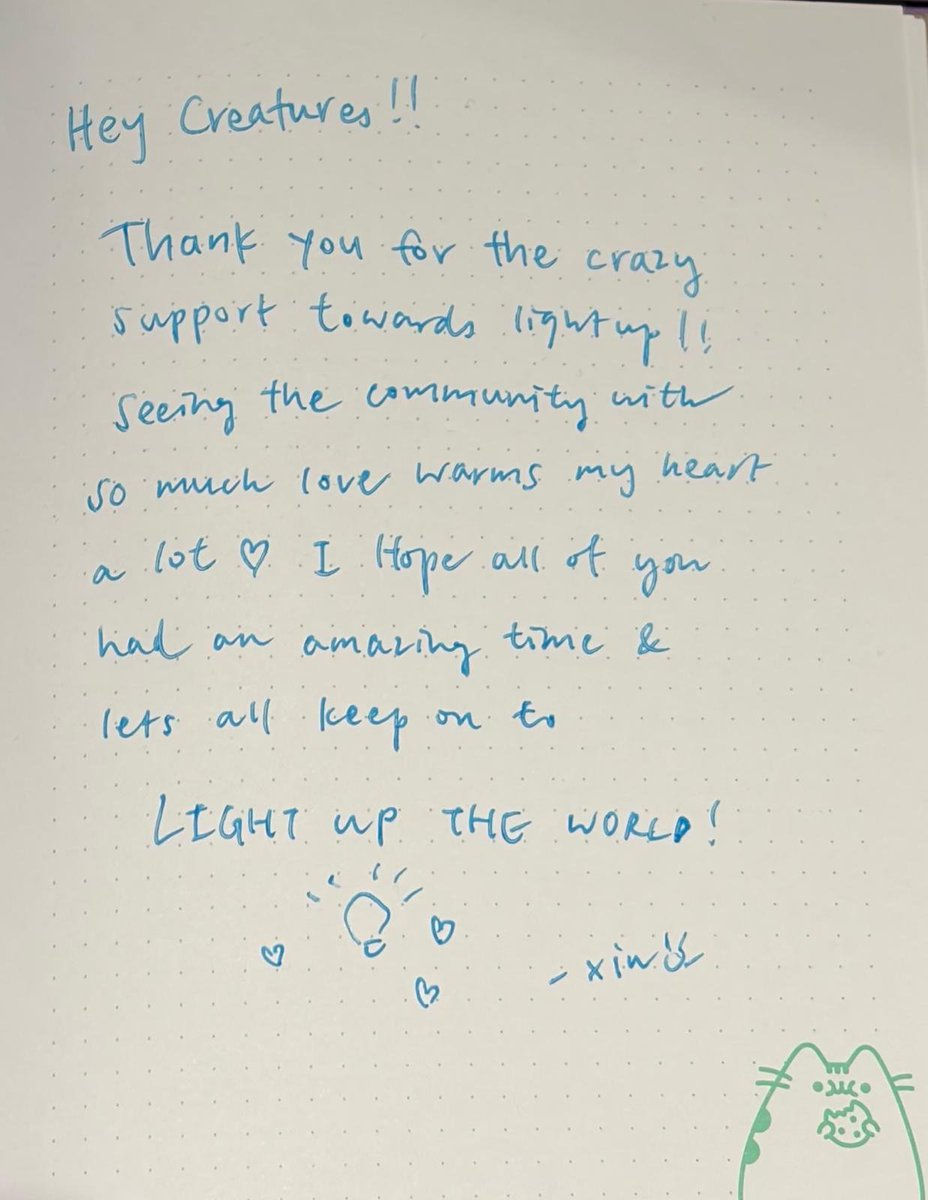 Hey Creatures!!
Thank you for the crazy
support towards lightup!!
seeing the community with
so much love warms my heart
a lot ♡ I Hope all of you
had an amazing time &
lets all keep on to
LIGHT UP THE WORLD!
- xin